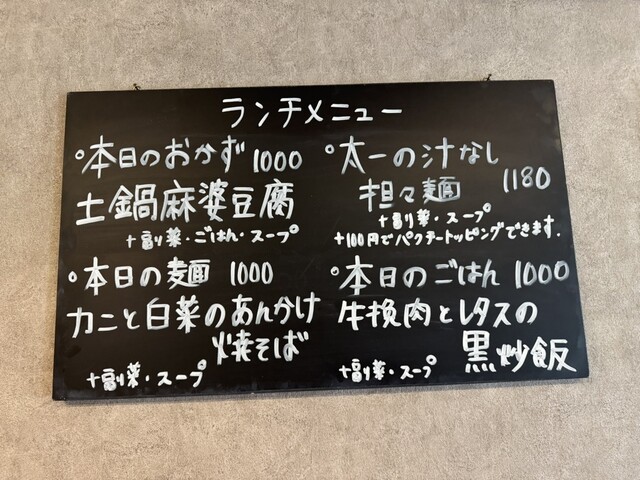 ランチメニュー
°本日のおかず 1000
土鍋麻婆豆腐
+副菜・ごはん・スープ
°太一の汁なし
担々麺 1180
+副菜・スープ
+100円でパクチートッピングできます.
°本日の麺 1000
カニと白菜のあんかけ
焼そば
+副菜・スープ
°本日のごはん 1000
牛挽肉とレタスの
黒炒飯
+副菜・スープ